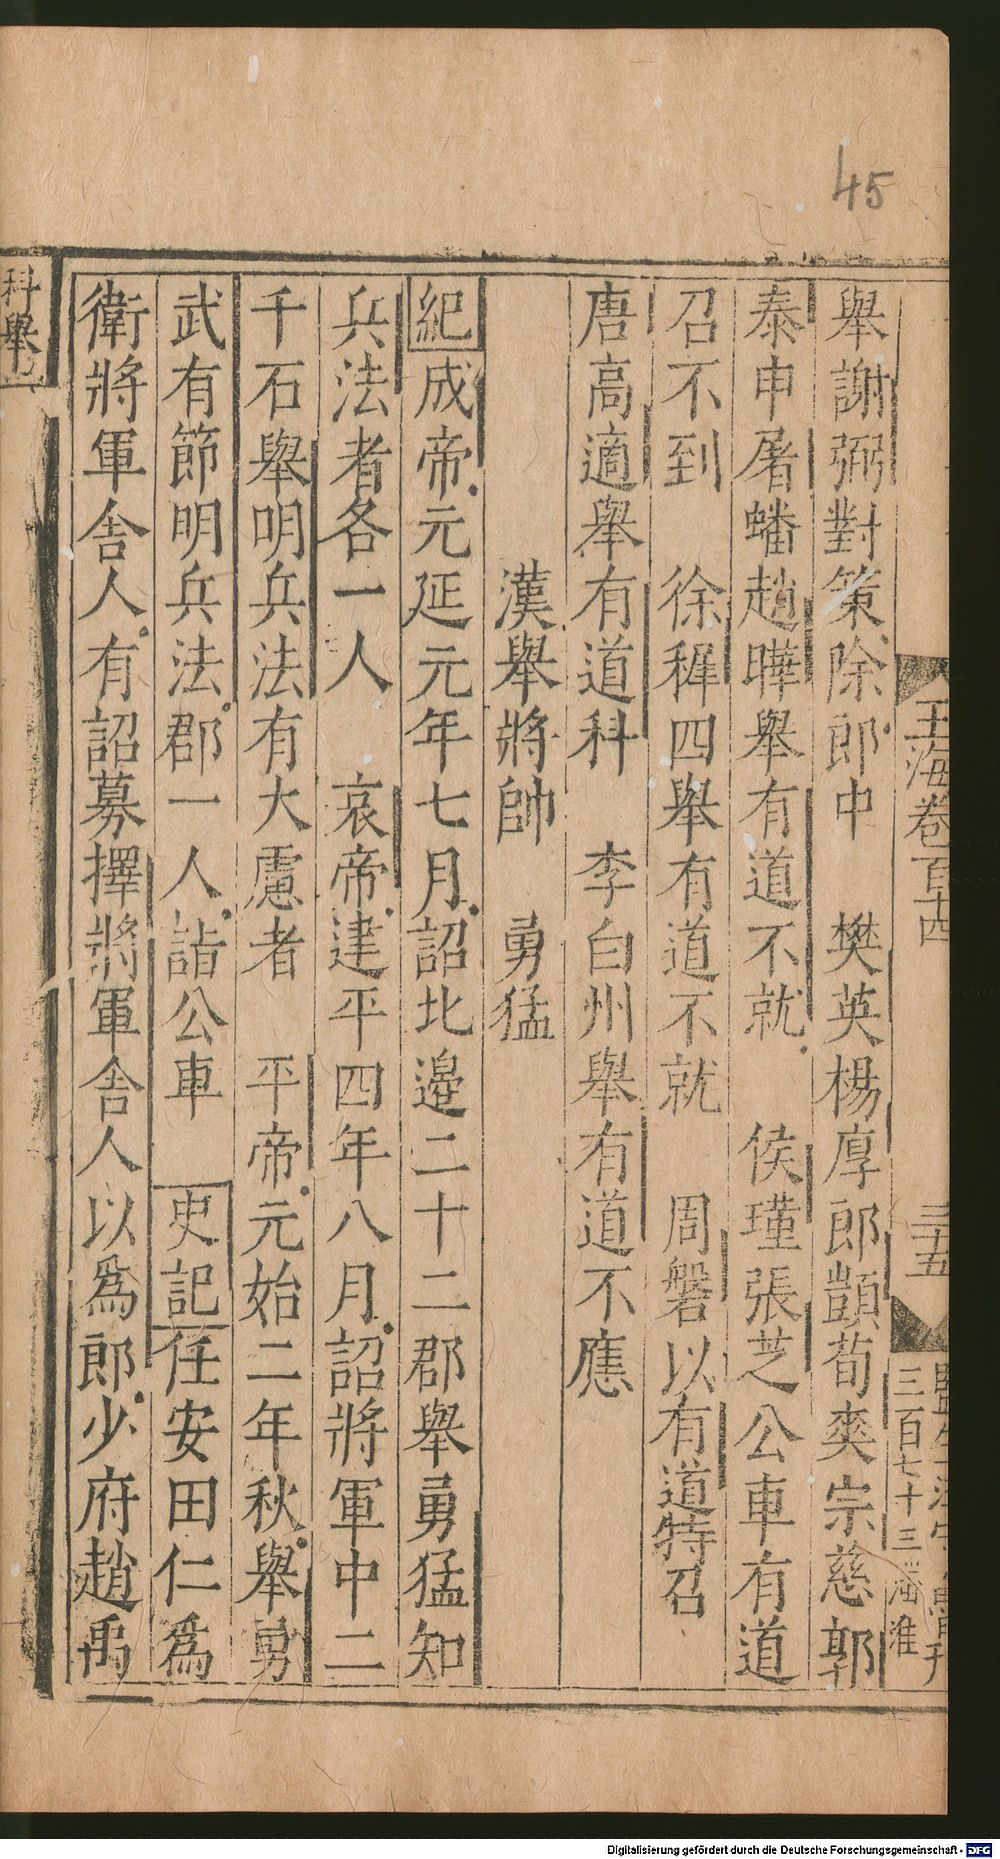 45
玉海卷百十四
三十五
三百七十三
潘淮
舉謝弼對策除郎中　樊英楊厚郎顗荀爽宗慈郭
泰申屠蟠趙曄舉有道不就　侯瑾張芝公車有道
召不到　徐稺四舉有道不就　周磐以有道特召
唐高適舉有道科　李白州舉有道不應
漢舉將帥　勇猛
紀成帝元延元年七月詔北邊二十二郡舉勇猛知
兵法者各一人　哀帝建平四年八月詔將軍中二
千石舉明兵法有大慮者　平帝元始二年秋舉勇
武有節明兵法郡一人詣公車　史記任安田仁爲
衛將軍舍人有詔募擇將軍舍人以爲郎少府趙禹
科舉
Digitalisierung gefördert durch die Deutsche Forschungsgemeinschaft - DFG